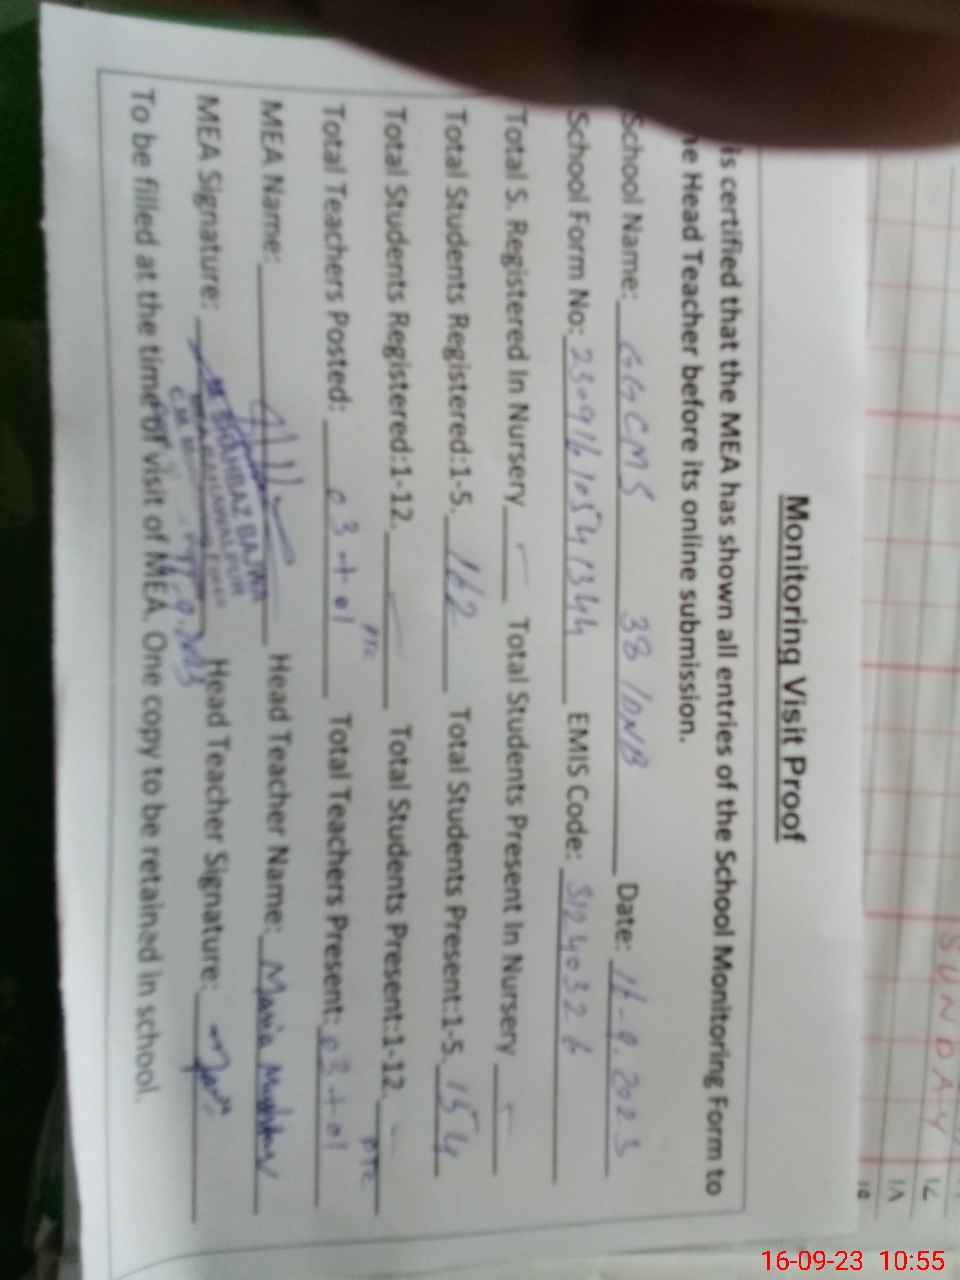 Monitoring Visit Proof
is certified that the MEA has shown all entries of the School Monitoring Form to
he Head Teacher before its online submission.
School Name: GGCMS 38 /DNB Date: 16-9-2023
School Form No: EMIS Code: 31240326
Total S. Registered In Nursery Total Students Present In Nursery
Total Students Registered:1-5. 162 Total Students Present:1-5. 154
Total Students Registered:1-12. Total Students Present:1-12. -
Total Teachers Posted: 03 + 01 PTC Total Teachers Present: 03 + 01 PTC
MEA Name: Head Teacher Name: Maria
MEA Signature: Head Teacher Signature:
16-9-2023
To be filled at the time of visit of MEA. One copy to be retained in school.
SUNDAY
16-09-23 10:55